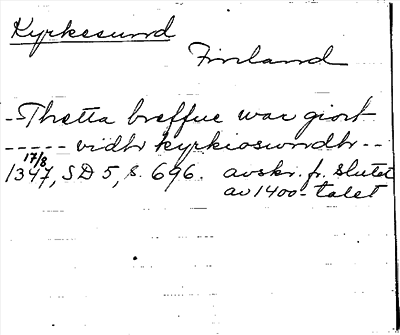 Kyrkesund
Finland
-- Thetta breffue war giort
----- vidhr kyrkioswndhr --
17/8
1347, SD 5, s. 696. avskr. fr. slutet
av 1400-talet